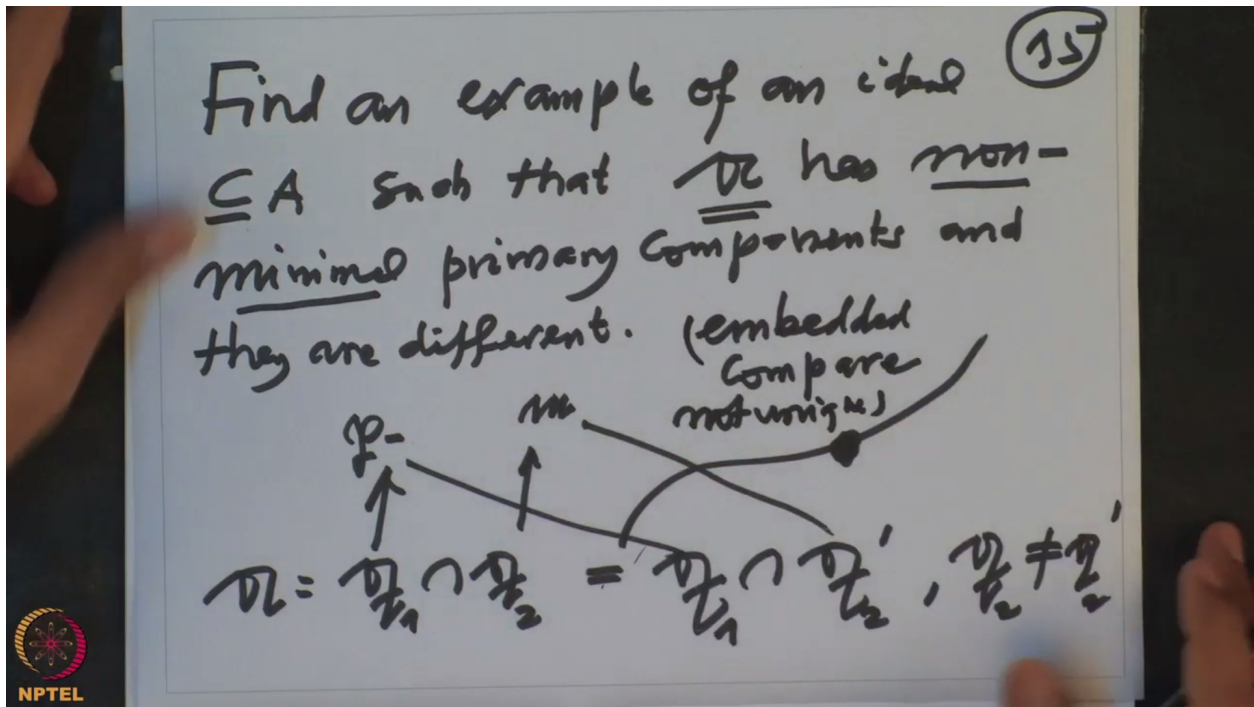 15
Find an example of an ideal
⊆ A such that 𝔞 has non-
minimal primary components and
they are different. (embedded
Comp are
not unique)
𝔭 𝔪
𝔞 = 𝔮₁ ∩ 𝔮₂ = 𝔮₁ ∩ 𝔮₂', 𝔮₂ ≠ 𝔮₂'
NPTEL